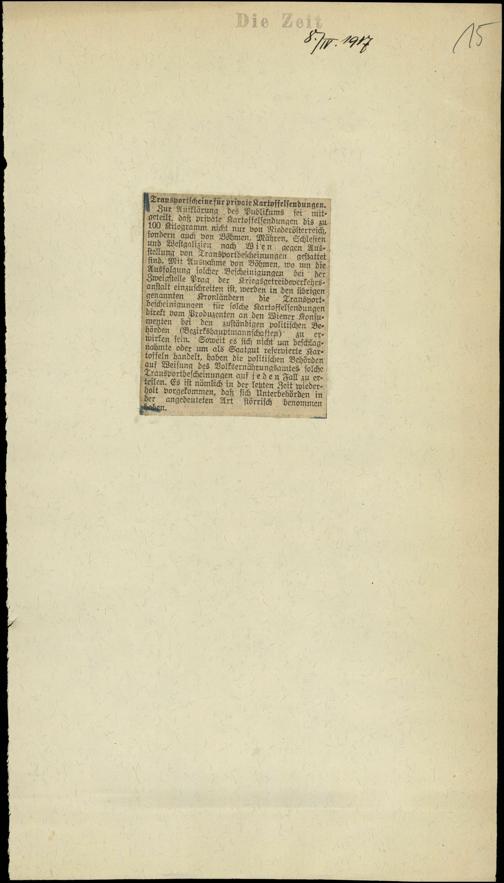 Die Zeit
8./IV. 1917
15
Transportscheine für private Kartoffelsendungen.
Zur Aufklärung des Publikums sei mit-
geteilt, daß private Kartoffelsendungen bis zu
100 Kilogramm nicht nur von Niederösterreich,
sondern auch von Böhmen, Mähren, Schlesien
und Westgalizien nach Wien gegen Aus-
stellung von Transportbescheinungen gestattet
sind. Mit Ausnahme von Böhmen, wo um die
Ausfolgung solcher Bescheinigungen bei der
Zweigstelle Prag der Kriegsgetreideverkehrs-
anstalt einzuschreiten ist, werden in den übrigen
genannten Kronländern die Transport-
bescheinigungen für solche Kartoffelsendungen
direkt vom Produzenten an den Wiener Konsu-
menten bei den zuständigen politischen Be-
hörden (Bezirkshauptmannschaften) zu er-
wirken sein. Soweit es sich nicht um beschlag-
nahmte oder um als Saatgut reservierte Kar-
toffeln handelt, haben die politischen Behörden
auf Weisung des Volksernährungsamtes solche
Transportbescheinungen auf jeden Fall zu er-
teilen. Es ist nämlich in der letzten Zeit wieder-
holt vorgekommen, daß sich Unterbehörden in
der angedeuteten Art störrisch benommen
haben.